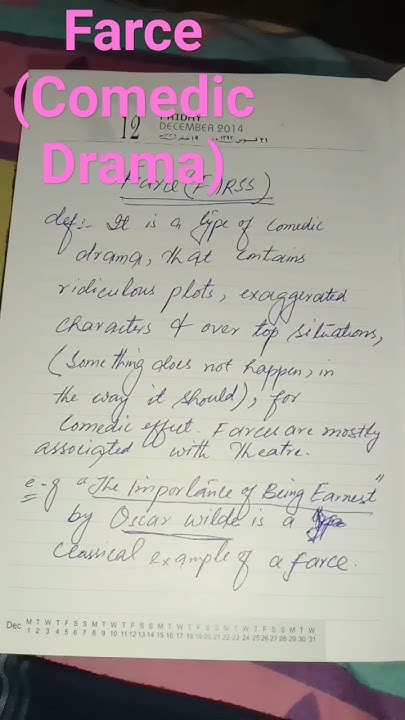 Farce
(Comedic
Drama)
12 FRIDAY
DECEMBER 2014
Farce (FARSS)
def:- It is a type of comedic
drama, that contains
ridiculous plots, exaggerated
characters & over top situations,
(Something does not happen, in
the way it should), for
comedic effect. Farces are mostly
associated with Theatre.
e-g "The Importance of Being Earnest"
by Oscar wilde is a
classical example of a farce.
Dec M T W T F S S M T W T F S S M T W T F S S M T W T F S S M T W
1 2 3 4 5 6 7 8 9 10 11 12 13 14 15 16 17 18 19 20 21 22 23 24 25 26 27 28 29 30 31